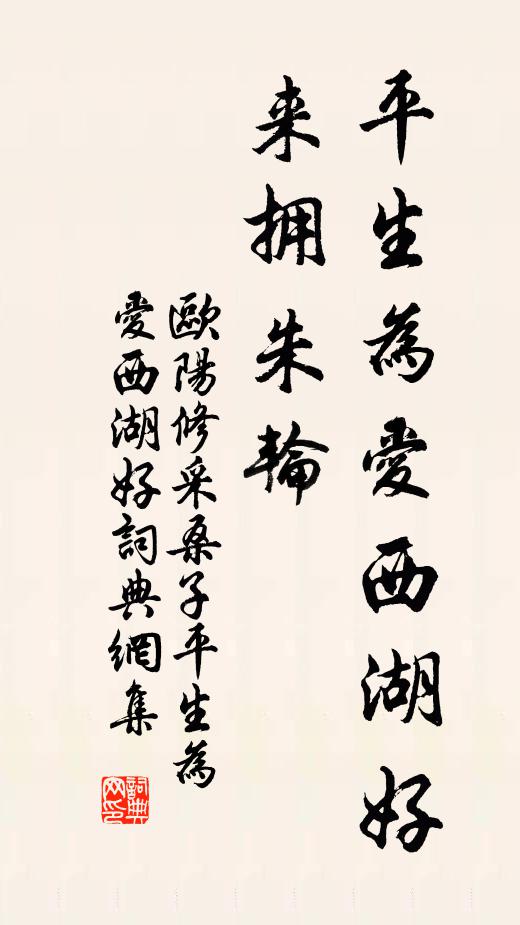 平生為愛西湖好
来拥朱輪
歐陽修采桑子平生為
愛西湖好詞典網集
詞典网印